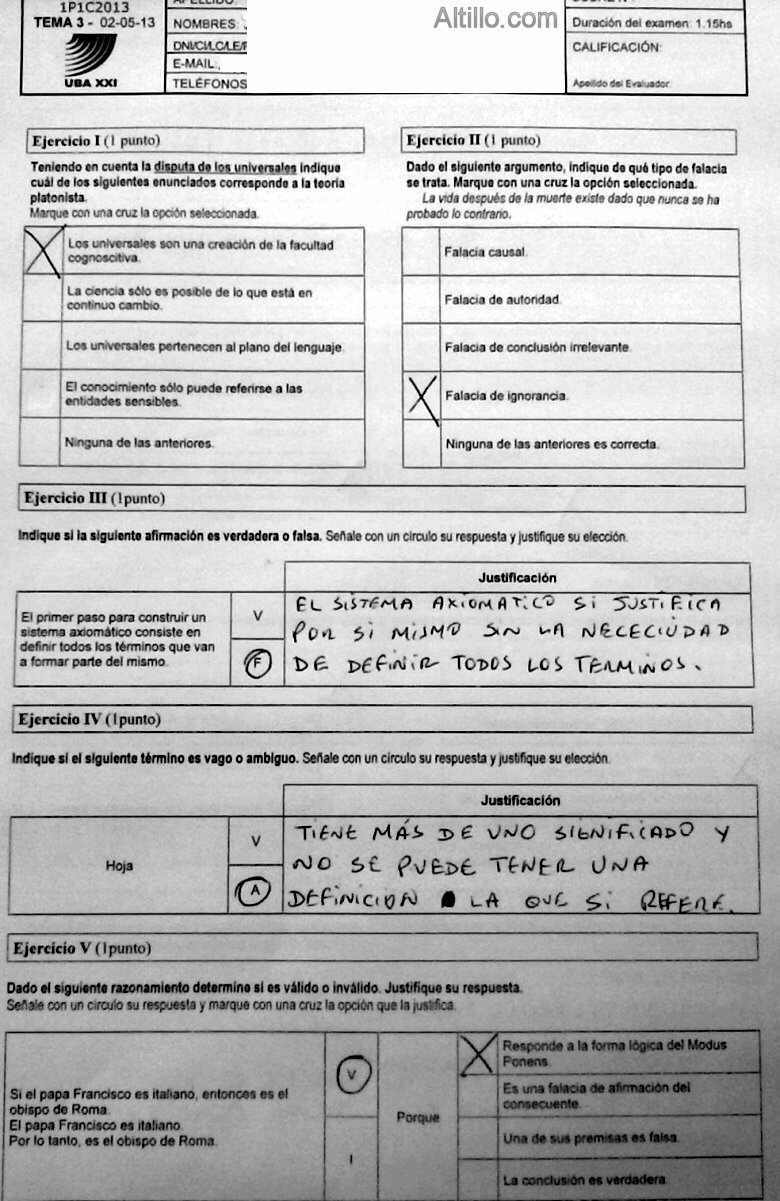 1P1C2013
TEMA 3 - 02-05-13
UBA XXI
APELLIDO:
NOMBRES:
DNI/CI/LC/LE/
E-MAIL:
TELÉFONOS
Altillo.com
Duración del examen: 1.15hs
CALIFICACIÓN:
Apellido del Evaluador:
Ejercicio I (1 punto)
Teniendo en cuenta la disputa de los universales indique
cuál de los siguientes enunciados corresponde a la teoría
platonista.
Marque con una cruz la opción seleccionada.
X
Los universales son una creación de la facultad
cognoscitiva.
La ciencia sólo es posible de lo que está en
continuo cambio.
Los universales pertenecen al plano del lenguaje.
El conocimiento sólo puede referirse a las
entidades sensibles.
Ninguna de las anteriores.
Ejercicio II (1 punto)
Dado el siguiente argumento, indique de qué tipo de falacia
se trata. Marque con una cruz la opción seleccionada.
La vida después de la muerte existe dado que nunca se ha
probado lo contrario.
Falacia causal.
Falacia de autoridad.
Falacia de conclusión irrelevante.
X
Falacia de ignorancia.
Ninguna de las anteriores es correcta.
Ejercicio III (1punto)
Indique si la siguiente afirmación es verdadera o falsa. Señale con un círculo su respuesta y justifique su elección.
Justificación
El primer paso para construir un
sistema axiomático consiste en
definir todos los términos que van
a formar parte del mismo.
V
F
EL SISTEMA AXIOMATICO SI JUSTIFICA
POR SI MISMO SIN LA NECECIUDAD
DE DEFINIR TODOS LOS TERMINOS.
Ejercicio IV (1punto)
Indique si el siguiente término es vago o ambiguo. Señale con un círculo su respuesta y justifique su elección.
Justificación
Hoja
V
A
TIENE MÁS DE UNO SIGNIFICADO Y
NO SE PUEDE TENER UNA
DEFINICION LA QUE SI REFERE.
Ejercicio V (1punto)
Dado el siguiente razonamiento determine si es válido o inválido. Justifique su respuesta.
Señale con un círculo su respuesta y marque con una cruz la opción que la justifica.
Si el papa Francisco es italiano, entonces es el
obispo de Roma.
El papa Francisco es italiano.
Por lo tanto, es el obispo de Roma.
V
I
Porque
X
Responde a la forma lógica del Modus
Ponens.
Es una falacia de afirmación del
consecuente.
Una de sus premisas es falsa.
La conclusión es verdadera.